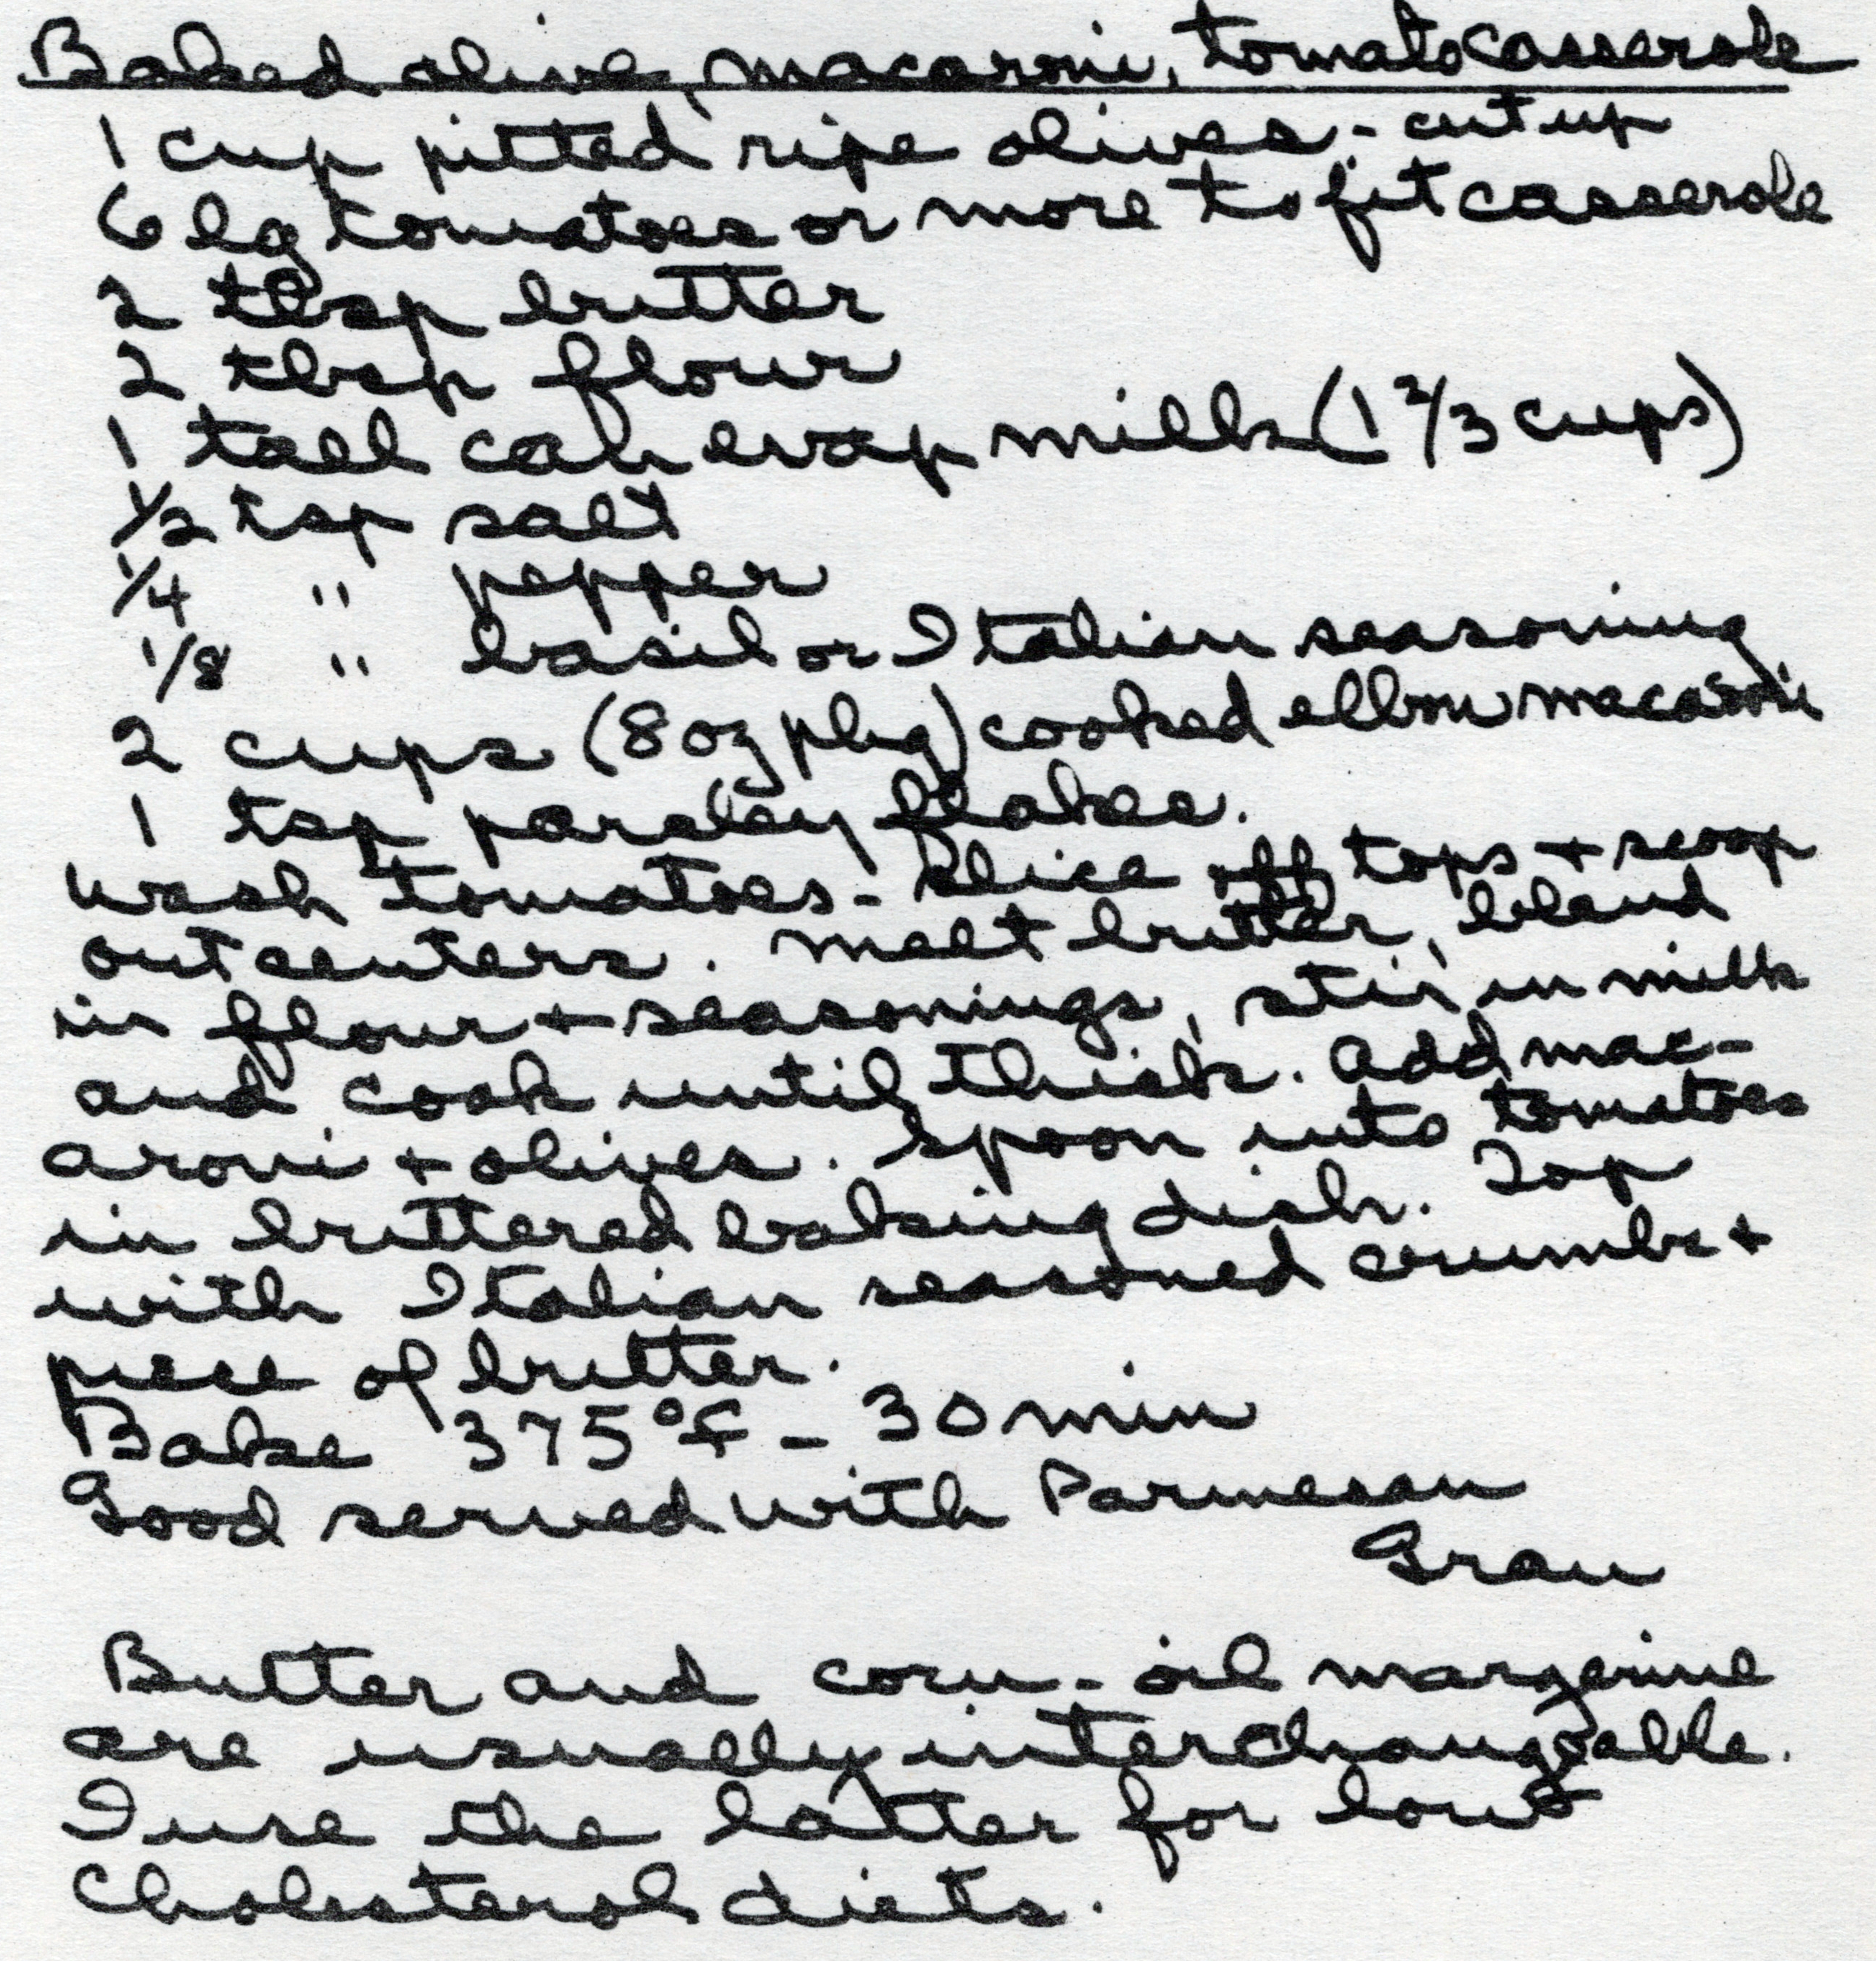 Baked olive, macaroni, tomato casserole
1 cup pitted ripe olives - cut up
6 lg tomatoes or more to fit casserole
2 tbsp butter
2 tbsp flour
1 tall can evap milk (1 2/3 cups)
1/2 tsp salt
1/4 " pepper
1/8 " basil or Italian seasoning
2 cups (8 oz pkg) cooked elbow macaroni
1 tsp parsley flakes.
Wash tomatoes - Slice off tops + scoop
out centers. Melt butter, blend
in flour + seasonings, stir in milk
and cook until thick. Add mac-
aroni + olives. Spoon into tomatoes
in buttered baking dish. Top
with Italian seasoned crumbs +
piece of butter.
Bake 375°F - 30 min
Good served with Parmesan
Gran
Butter and corn-oil margerine
are usually interchangeable.
I use the latter for low
Cholesterol diets.